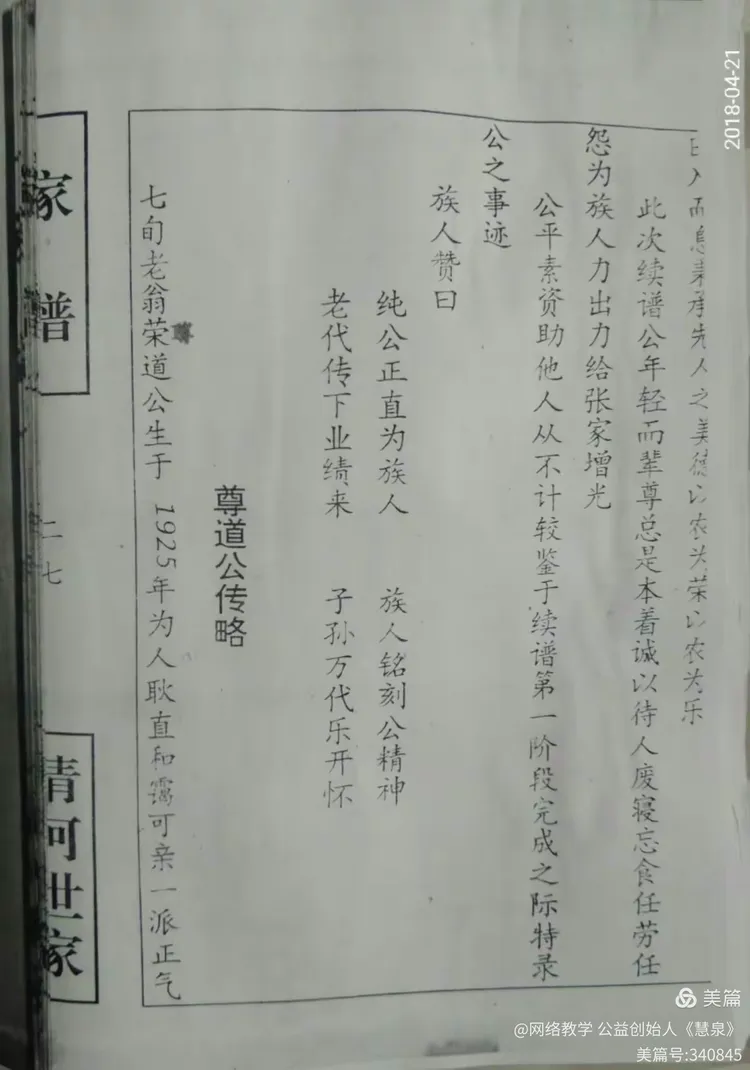 日入而息秉承先人之美德以农为荣以农为乐
此次续谱公年轻而辈尊总是本着诚以待人废寝忘食任劳任
怨为族人力出力给张家增光
公平素资助他人从不计较鉴于续谱第一阶段完成之际特录
公之事迹
族人赞曰
纯公正直为族人 族人铭刻公精神
老代传下业绩来 子孙万代乐开怀
尊道公传略
七旬老翁荣道公生于 1925年为人耿直和霭可亲一派正气
尊
家谱
二七
清河世家
2018-04-21
美篇
@网络教学 公益创始人《慧泉》
美篇号:340845